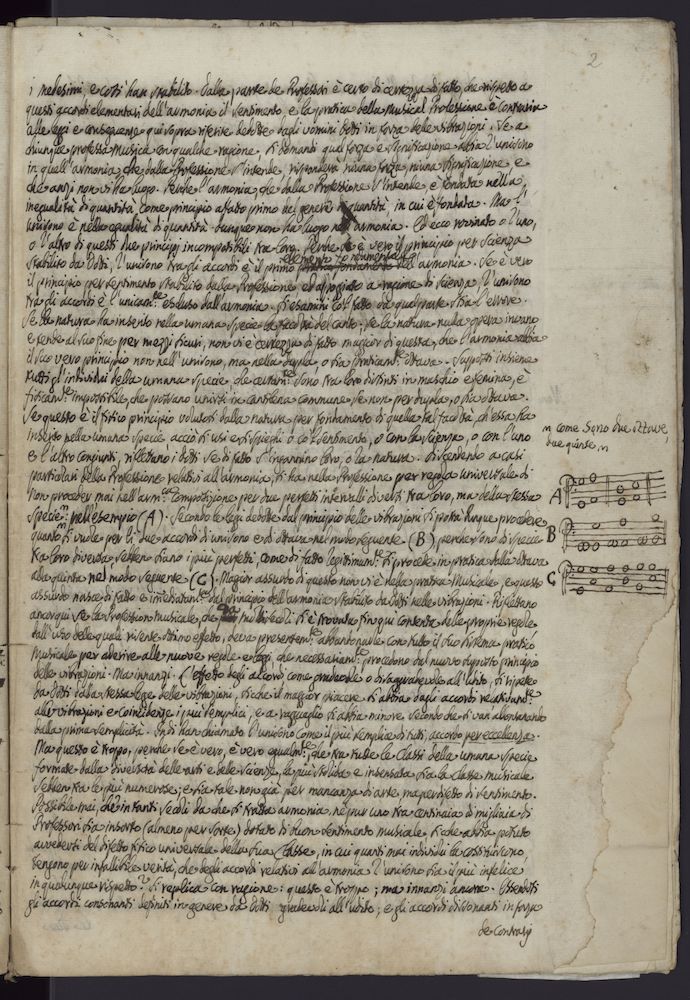 2
i medesimi, e così han stabilito. Dalla parte de Professori è certo di certezza di fatto, che rispetto a
questi accordi elementari dell'armonia il sentimento, e la pratica della musical Professione è contraria
alle leggi e conseguenze qui sopra riferite dedotte dagli uomini dotti in forza delle vibrazioni. Se a
chiunque professa Musica con qualche ragione, si domandi qual forza e significazione abbia l'unisono
in quell'armonia, che dalla Professione s'intende, risponderà niuna forza, niuna significazione, e
che anzi non vi ha luogo. Perchè l'armonia, che dalla Professione s'intende, è fondata nella
inegualità di quantità come principio affatto primo del genere di quantità, in cui è fondata. Ma l'
unisono è nella egualità di quantità: dunque non ha luogo nell'armonia. Ed ecco rovinato o l'uno,
o l'altro di questi due principj incompatibili tra loro. Perchè se è vero il principio per Scienza
stabilito da Dotti, l'unisono tra gli accordi è il primo elemento fondamentale dell'armonia. Se è vero
il principio per sentimento stabilito dalla Professione ed appoggiato a ragione di scienza, l'unisono
tra gli accordi è l'unicam.te escluso dall'armonia. Si esamini col fatto da qual parte stia l'errore.
Se la natura ha inserito nella umana specie la facoltà del canto; se la natura nulla opera invano
e tende al suo fine per mezzi sicuri, non vi è certezza di fatto maggior di questa, che l'armonia abbia
il suo vero principio non nell'unisono, ma nella dupla, o sia praticam.te ottava. Supposti insieme
tutti gl'individui della umana specie, che comun.te sono tra loro distinti in maschio e femina, è
fisicam.te impossibile, che possano unirsi in cantilena commune se non per dupla, o sia ottava.
Se questo è il fisico principio voluto dalla natura per fondamento di quella tal facoltà, ch'essa ha
inserto nella umana specie, acciò si usi e si spieghi o col sentimento, o con la scienza, o con l'uno
e l'altro congiunti, riflettano i dotti se di fatto s'ingannino loro, o la natura. Discendendo a casi
particolari della Professione relativi all'armonia, si ha nella Professione per regola universale di
non proceder mai nell'arm.ca Composizione per due perfetti intervalli diversi tra loro, ma della stessa
specie: nell'esempio (A). Secondo le leggi dedotte dal principio delle vibrazioni si potrà dunque procedere
quanto si vuole per li due accordi di unisono e di ottava nel modo seguente (B) perchè sono di specie
tra loro diversa, sebben siano i più perfetti, come di fatto legitimam.te si procede in pratica dalla ottava
alla quinta nel modo seguente (C). Maggior assurdo di questo non vi è nella pratica Musicale, e questo
assurdo nasce di fatto e immediatam.te dal principio dell'armonia stabilito da Dotti nelle vibrazioni. Riflettano
ancor qui se la Profession musicale, che per molti secoli si è trovata fin qui contenta delle proprie regole
dall'uso delle quali rivente ottimo effetto, deva presentem.te abbandonarle con tutto il suo sistema pratico
Musicale per aderire alle nuove regole e leggi, che necessariam.te procedono dal nuovo supposto principio
delle vibrazioni. Ma innanzi. L'effetto degli accordi come gradevole o disaggradevole all'udito, si ripete
da Dotti dalla stessa legge delle vibrazioni, sicchè il maggior piacere si abbia dagli accordi relativam.te
alle vibrazioni e coincidenze i più semplici, e a ragguaglio si abbia minore secondo che si van allontanando
dalla prima semplicità. Indi han chiamato l'unisono come il più semplice di tutti, accordo per eccellenza.
Ma questo è troppo, perchè se è vero, è vero egualm.te, che tra tutte le classi della umana specie
formate dalla diversità delle arti e delle scienze, la più stolida e insensata sia la classe musicale
sebben tra le più numerose; e sia tale non già per mancanza di arte, ma per difetto di sentimento.
Possibile mai, che in tanti secoli da che si tratta armonia, nè pur uno tra centinaia di migliaia di
Professori sia insorto (almeno per sorte) dotato di buon sentimento musicale, sicchè abbia potuto
avvedersi del difetto fisico universale della sua Classe, in cui quanti mai individui la costituiscono,
tengono per infallibile verità, che degli accordi relativi all'armonia l'unisono sia il più infelice
in qualunque rispetto? Si replica con ragione: questo è troppo; ma innanzi ancora. Essendosi
gli accordi consonanti definiti in genere da Dotti gradevoli all'udito; e gli accordi dissonanti in forza
de contrarj
come sono due ottave,
due quinte,
A
B
C